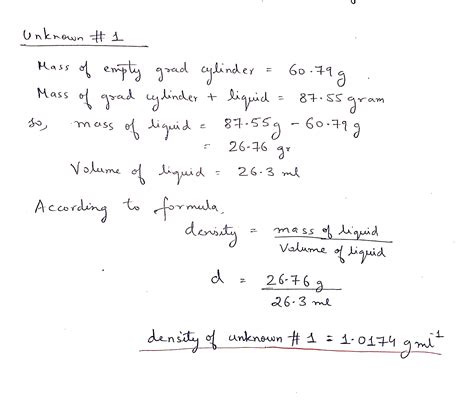 Unknown # 1
Mass of empty grad cylinder = 60.79 g
Mass of grad cylinder + liquid = 87.55 gram
so, mass of liquid = 87.55g - 60.79 g
= 26.76 gr
Volume of liquid = 26.3 ml
According to formula,
density = mass of liquid
Volume of liquid
d = 26.76 g
26.3 ml
density of unknown # 1 = 1.0174 g ml⁻¹